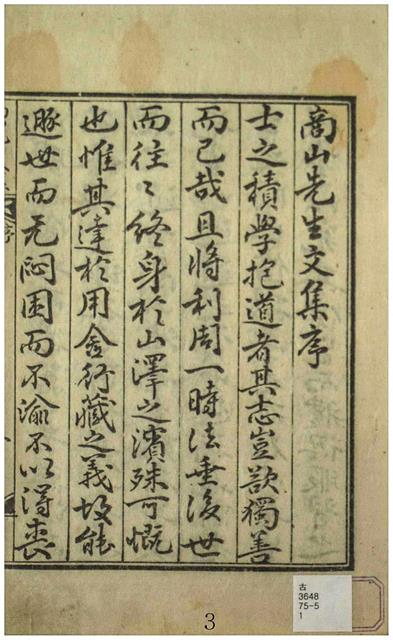 商山先生文集序
士之積學抱道者其志豈欲獨善
而已哉且將利周一時法垂後世
而往々終身於山澤之濱殊可慨
也惟其達於用舍行藏之義故能
遯世而无悶困而不渝不以得喪
序
古
3648
75-5
1
3